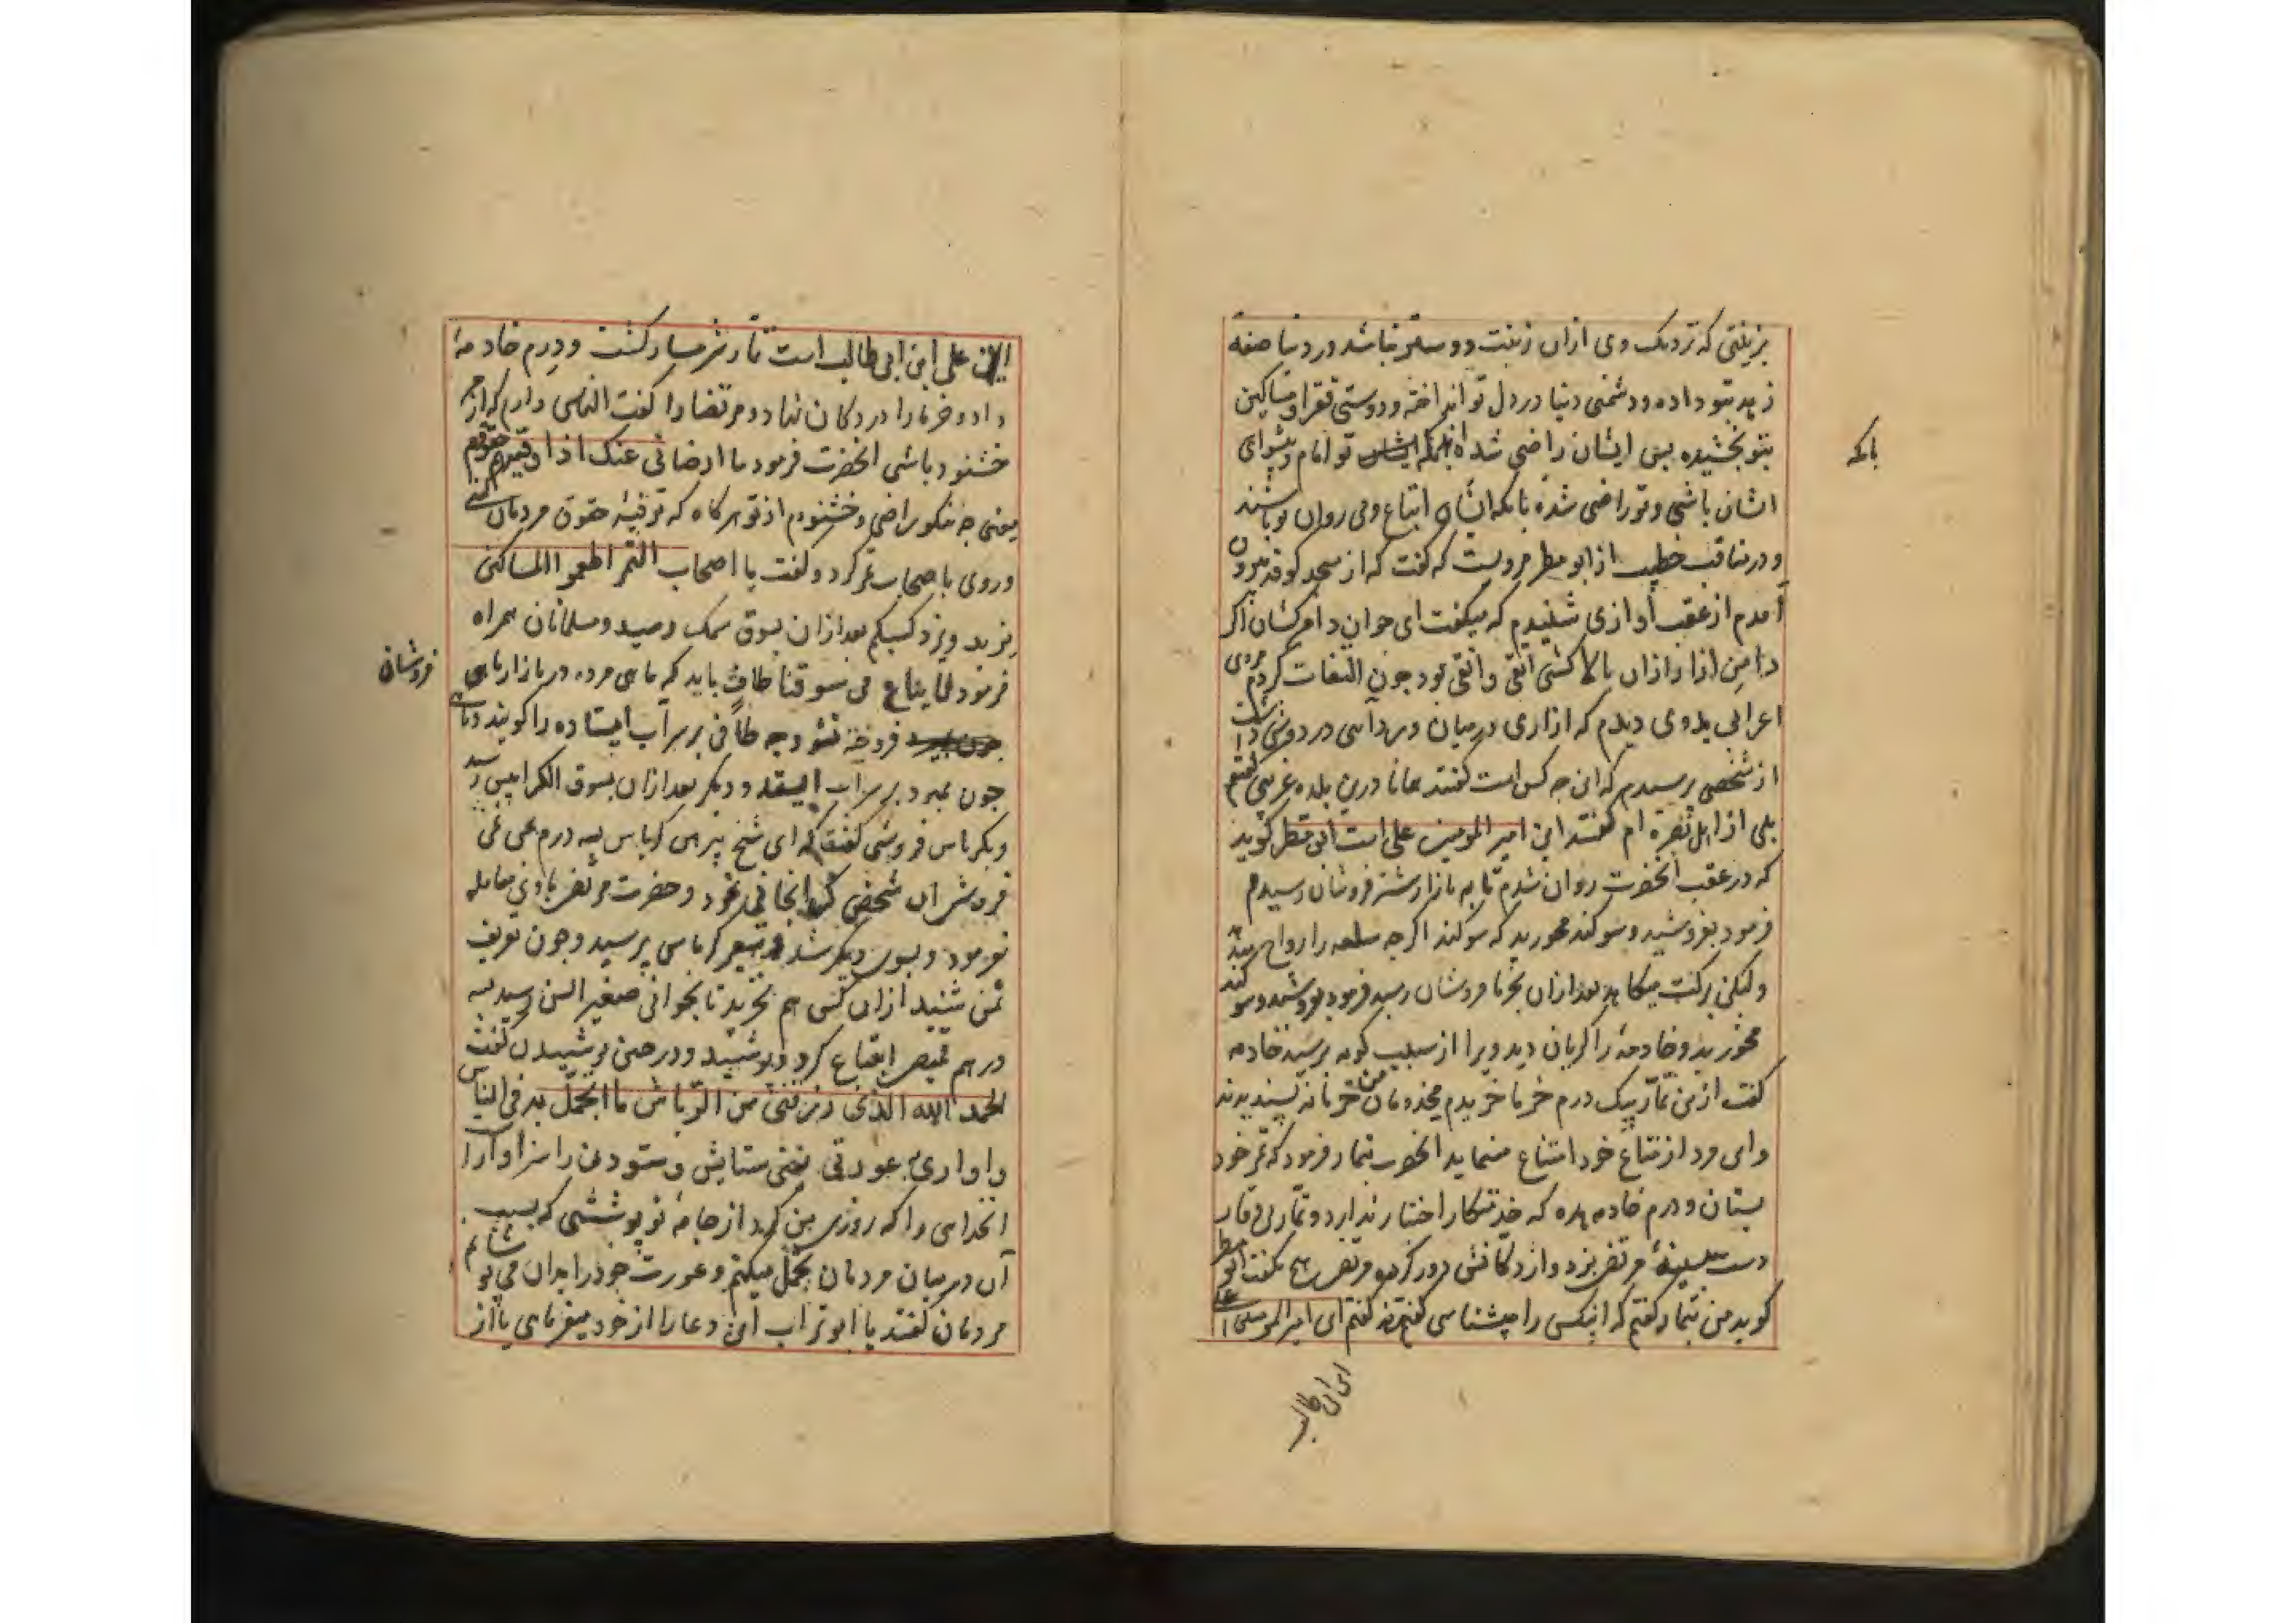 بزینتی که نزدیک وی ازان زینت دوستر نباشد در دنیا صفه
زهد بتو داده و دشمنی دنیا در دل تو انداخته و دوستی فقرا و مساکین
بتو بخشیده پس ایشان راضی شده تو امام و پیشوای
بانکه
اشان باشی و تو راضی شدهٔ بانکه ایشان اتباع و پی روان تو باشند
و در مناقب خطیب از ابو مطر مرویست که گفت که از مسجد کوفه بیرون
آمدم از عقب آوازی شنیدم که میگفت ای جوان دامن کشان اگر
دامن ازار ازان بالا کشی اتقی و انقی بود چون التفات کردم مردی
اعرابی بدوی دیدم که ازاری در میان و ردائی در دوش داشت
از شخصی پرسیدم که این چه کس است گفتند همانا درین بلده غریبی گفتم
بلی از اهل بصره ام گفتند این امیر المومنین علی است ابو مطر گوید
که در عقب انحضرت روان شدم تا به بازار شتر فروشان رسیدم
فرمود بفروشید و سوکند مخورید که سوکند اگرچه سلعه را رواج میدهد
ولیکن برکت میکاهد بعد ازان بخرما فروشان رسید فرمود بفروشید و سوکند
مخورید و خادمهٔ را گریان دید ویرا از سبب گریه پرسید خادمه
گفت ازین تمار بیک درم خرما خریدم مخدومان من خرما نه پسندیدند
و این مرد از متاع خود امتناع مینماید انحضرت بتمار فرمود که تمر خود
بستان و درم خادمه بده که خدمتکار اختیار ندارد و تمار بی وقار
دست بسینهٔ مرتضی بزد و از دکانش دور کرد مرتضی هیچ نگفت ابو مطر
گوید من بتمار گفتم که اینکس را میشناسی گفت نه گفتم ای امیر المومنین علی
ابن ابی طالب
این علی ابن ابی طالب است تمار شرمسار گشت و درم خادمهٔ
داد و خرما را در دکان نهاد و مرتضا را گفت التماس دارم که از من
خشنود باشی انحضرت فرمود ما ارضانی عنک اذا وفیتهم حقوقهم
یعنی چه نیکو راضی و خشنودم از تو هرگاه که توفیهٔ حقوق مردمان کنی
و روی باصحاب تمر کرد و گفت یا اصحاب التمر اطعموا المساکین
یزید ویزد کسبکم بعد ازان بسوق سمک رسید و مسلمانان همراه
فرمود لا یباع فی سوقنا طاف باید که ماهی مرده در بازار ماهی
فروشان
فروخته نشود چه طافی بر سر آب ایستاده را گویند و ماهی
چون بمیرد بر سر آب ایستد و دیگر بعد ازان بسوق الکرابیس رسید
و بکرباس فروشی گفت که ای شیخ پیراهن کرباس به سه درم بمن
فروش آن شخص نمود و حضرت مرتضی باوی معامله
نفرمود و بسوی دیگر شد و سعر کرباس پرسید و چون تعریف
ثمن شنید ازان کس هم نخرید تا بجوانی صغیر السن رسید بسه
درهم قمیصی ابتیاع کرد و پوشید و در حین پوشیدن گفت
الحمد لله الذی رزقنی من الریاش ما اتجمل به فی الناس
و اواری به عورتی یعنی ستایش و ستودن را سزاوار
انخدای را که روزی من کرد از جامهٔ نو پوششی که بسبب
آن در میان مردمان تجمل میکنم و عورت خود را بدان می پوشانم
مردمان گفتند یا ابو تراب این دعا را از خود میفرمایی یا از